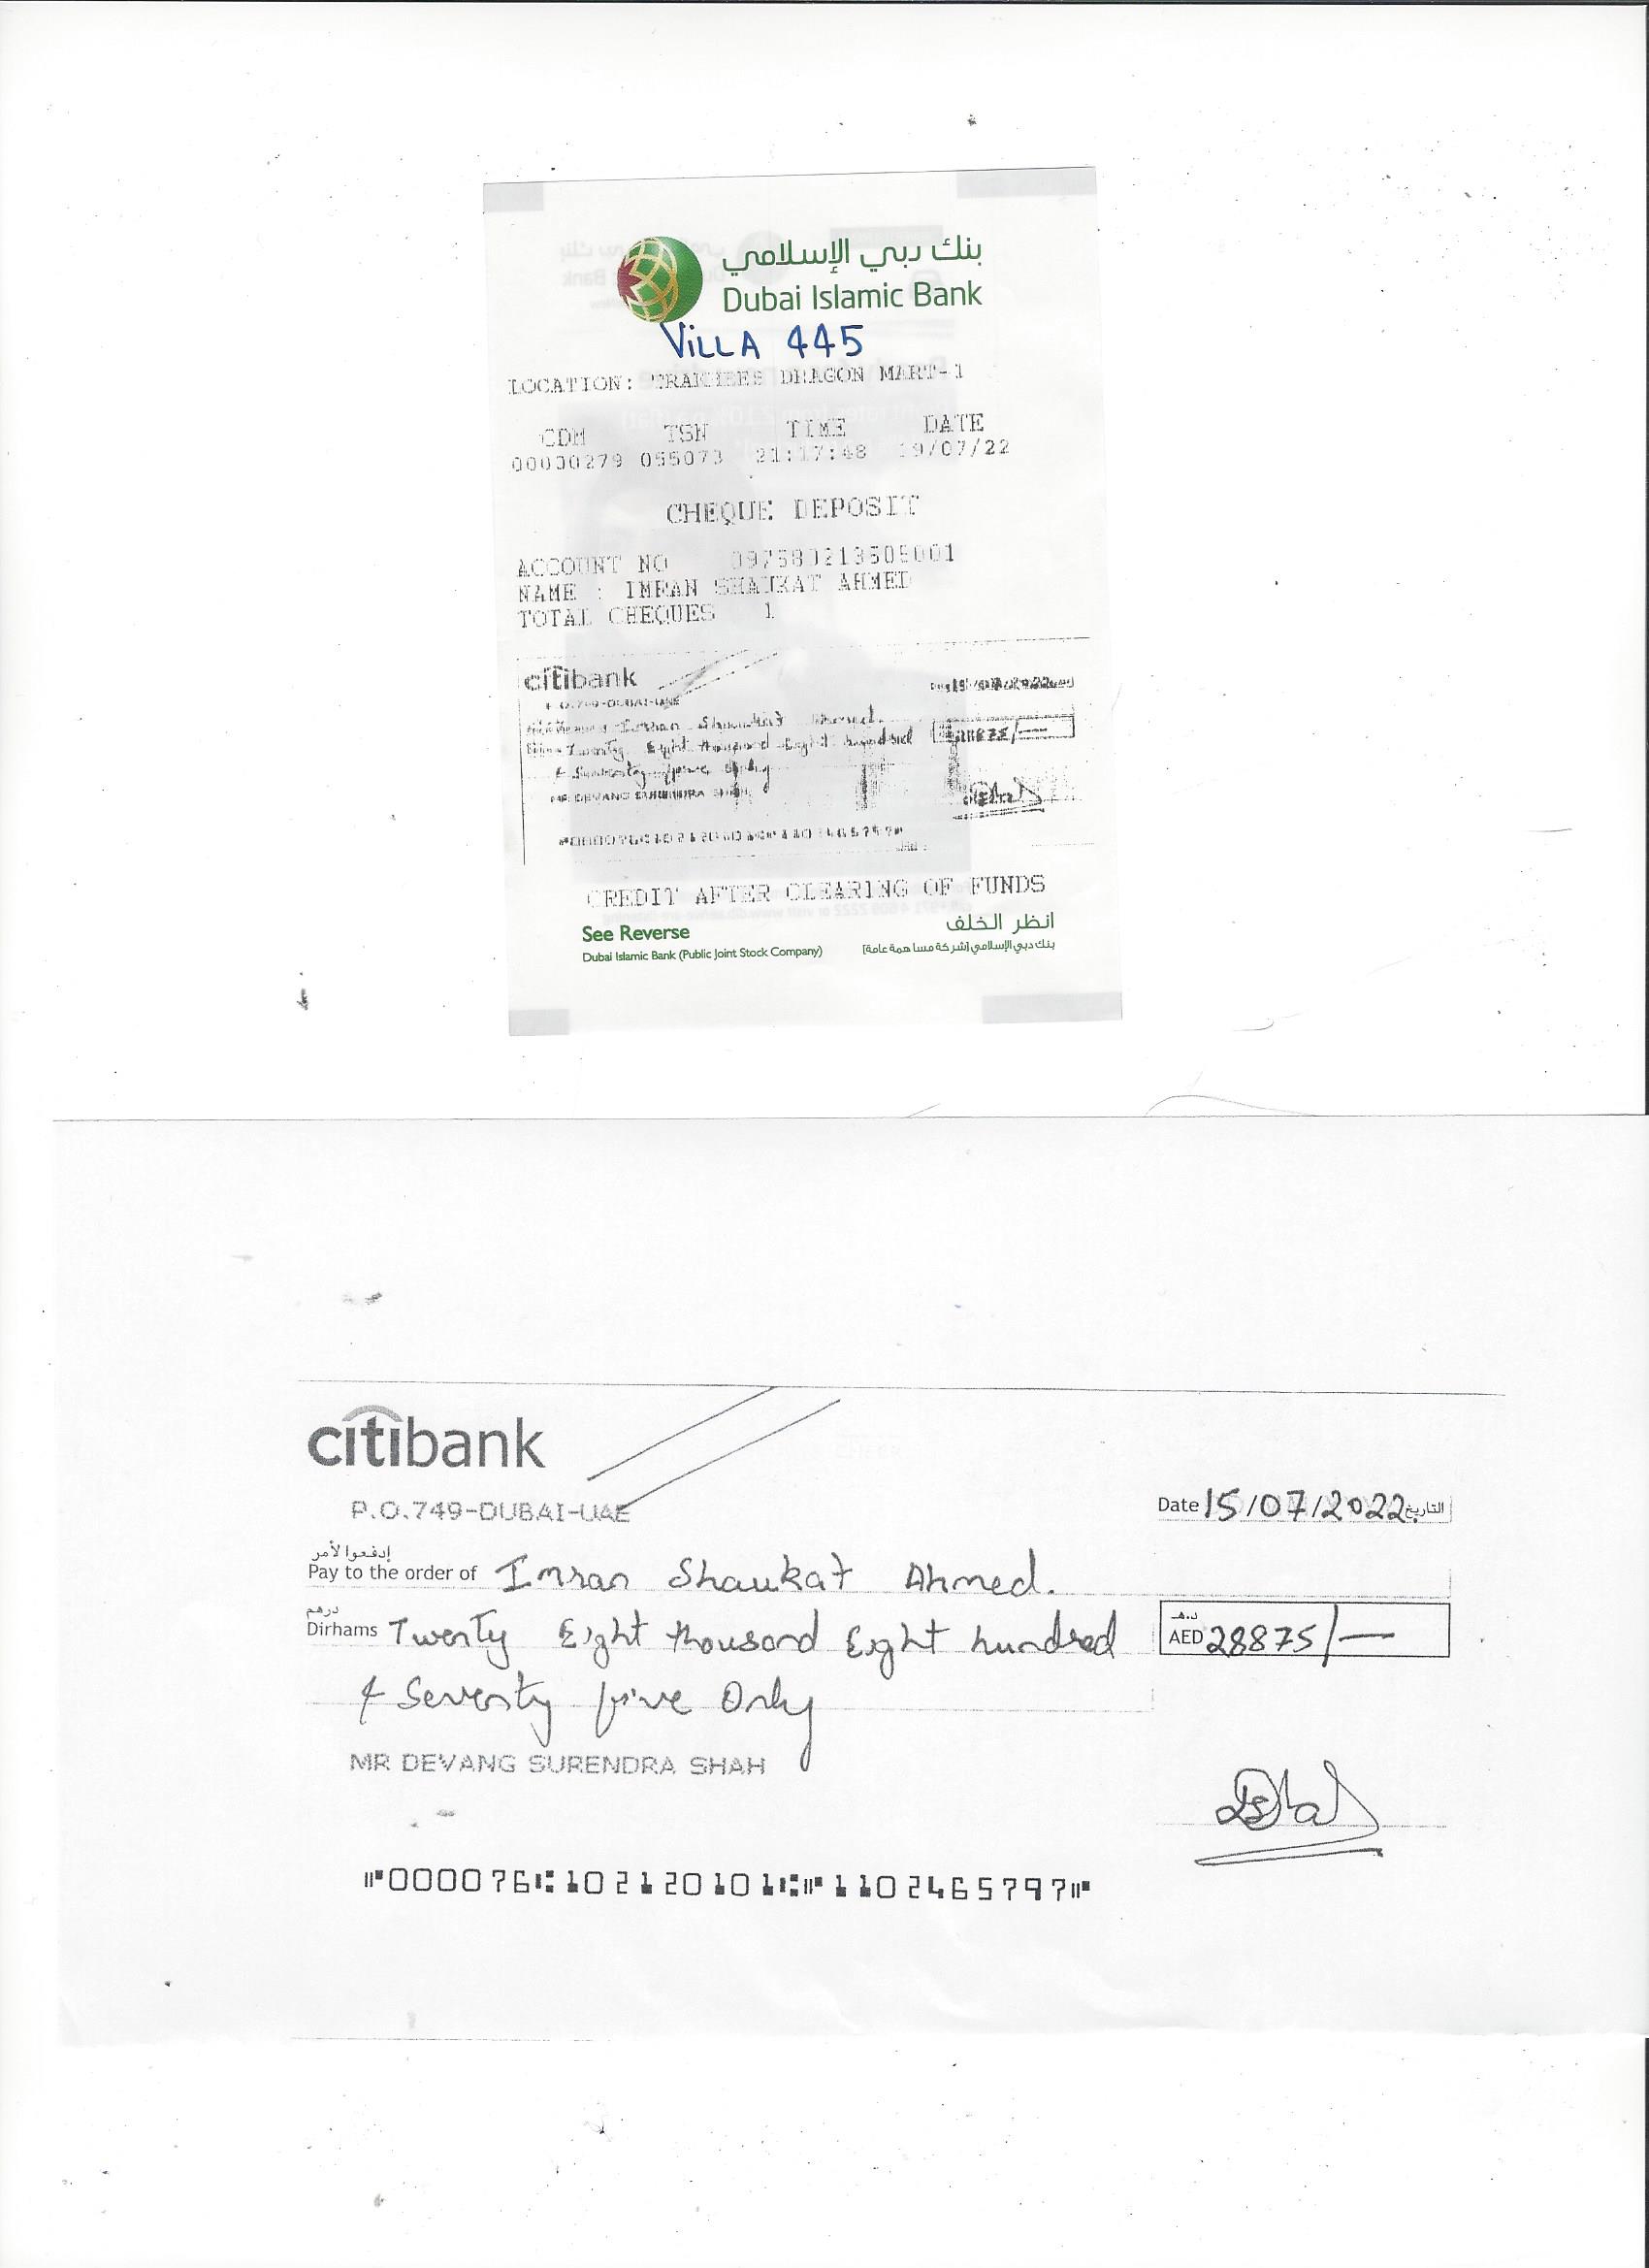 بنك دبي الإسلامي
Dubai Islamic Bank
VILLA 445
LOCATION: DRAGON MART-1
CDM TSN TIME DATE
00000279 055073 21:17:48 19/07/22
CHEQUE DEPOSIT
ACCOUNT NO
NAME : IMRAN SHAUKAT AHMED
TOTAL CHEQUES 1
citibank
P.O.749-DUBAI-UAE
15/07/2022
Imran Shaukat Ahmed.
Twenty Eight thousand Eight hundred 28875/—
& Seventy five Only
MR DEVANG SURENDRA SHAH
CREDIT AFTER CLEARING OF FUNDS
See Reverse انظر الخلف
Dubai Islamic Bank (Public Joint Stock Company) بنك دبي الإسلامي (شركة مساهمة عامة)
citibank
P.O.749-DUBAI-UAE
Date 15/07/2022 التاريخ
إدفعوا لأمر
Pay to the order of Imran Shaukat Ahmed.
درهم د.هـ
Dirhams Twenty Eight thousand Eight hundred AED 28875/—
& Seventy five Only
MR DEVANG SURENDRA SHAH
⑈000076⑆102120101⑆⑈1102465797⑈